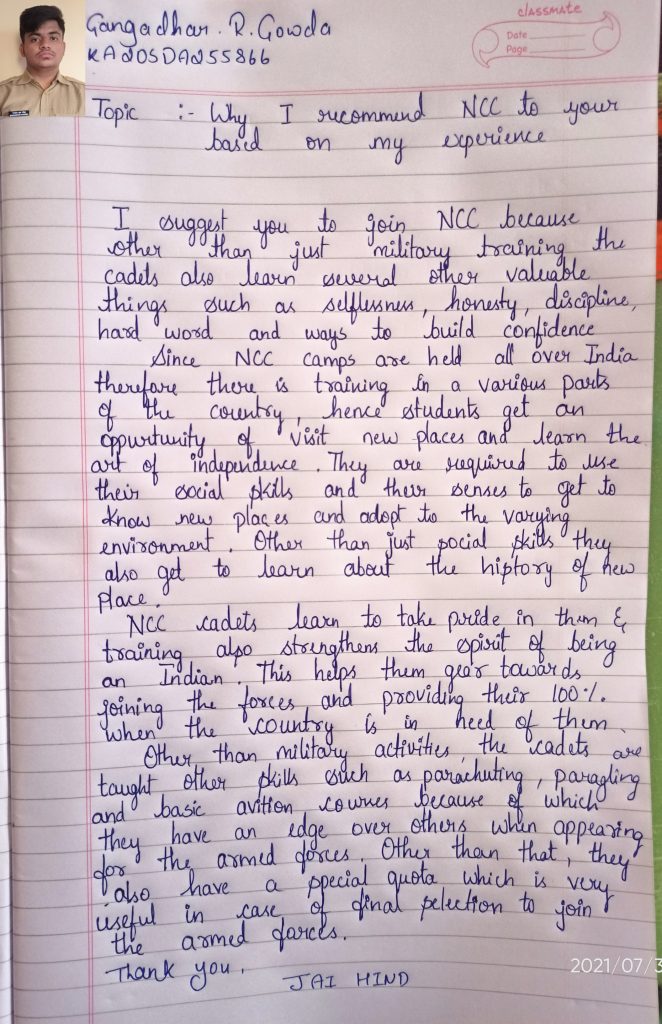 Gangadhar. R. Gowda
KA20SDA255866
classmate
Date
Page
Topic :- Why I recommend NCC to your
based on my experience
I suggest you to join NCC because
other than just military training the
cadets also learn several other valuable
things such as selflessness, honesty, discipline,
hard word and ways to build confidence
Since NCC camps are held all over India
therefore there is training in a various parts
of the country, hence students get an
oppurtunity of visit new places and learn the
art of independence. They are required to use
their social skills and their senses to get to
know new places and adopt to the varying
environment. Other than just social skills they
also get to learn about the history of new
place.
NCC cadets learn to take pride in them &
training also strengthens the spirit of being
an Indian. This helps them gear towards
joining the forces and providing their 100%.
when the country is in need of them.
Other than military activities, the cadets are
taught other skills such as parachuting, paragling
and basic avition courses because of which
they have an edge over others when appearing
for the armed forces. Other than that, they
also have a special quota which is very
useful in case of final selection to join
the armed forces.
Thank you.
JAI HIND
2021/07/3